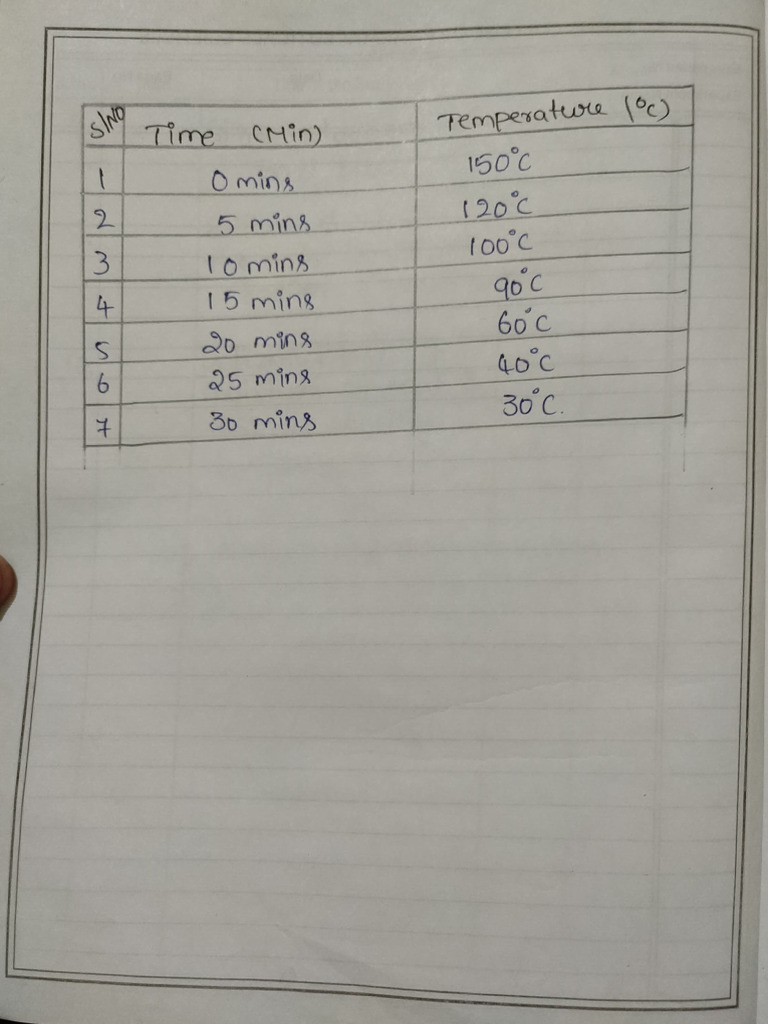 S/NO Time (Min) Temperature (°C)
1 0 mins 150°C
2 5 mins 120°C
3 10 mins 100°C
4 15 mins 90°C
5 20 mins 60°C
6 25 mins 40°C
7 30 mins 30°C.